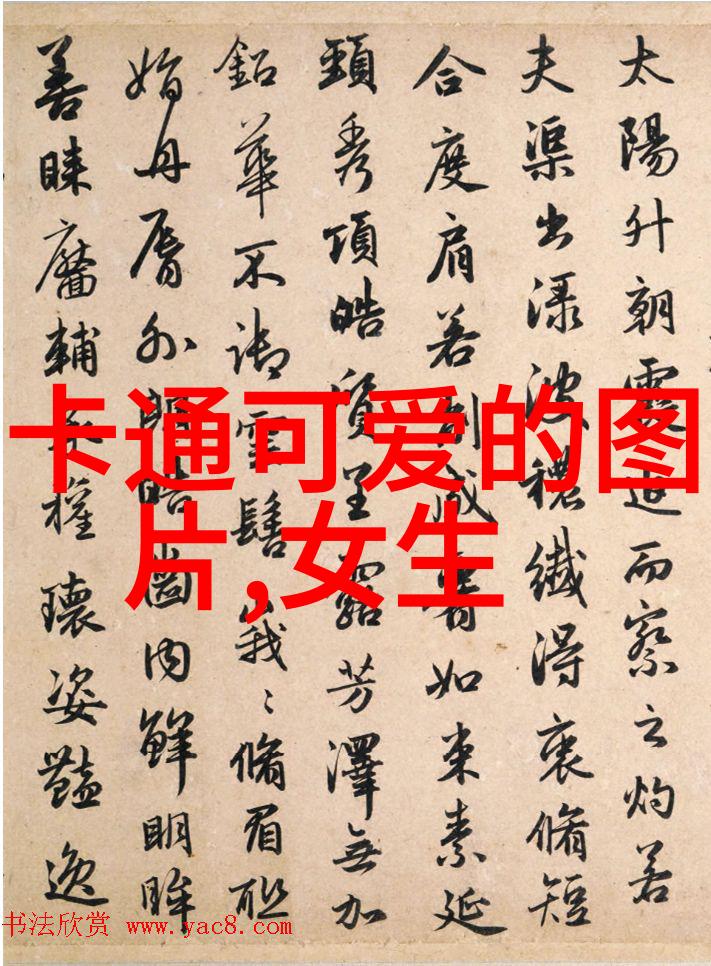 太陽升朝霞迫而察之灼若
夫渠出渌波穠纖得衷脩短
合度肩若削成如束素延
頸秀項皓質呈露芳澤無加
鉛華不御雲髻峩〻脩眉聮
娟丹脣外朗皓齒内鮮明眸
善睞靨輔承權瓌姿豔逸
卡通可爱的图
片,女生
书法欣赏 www.yac8.com